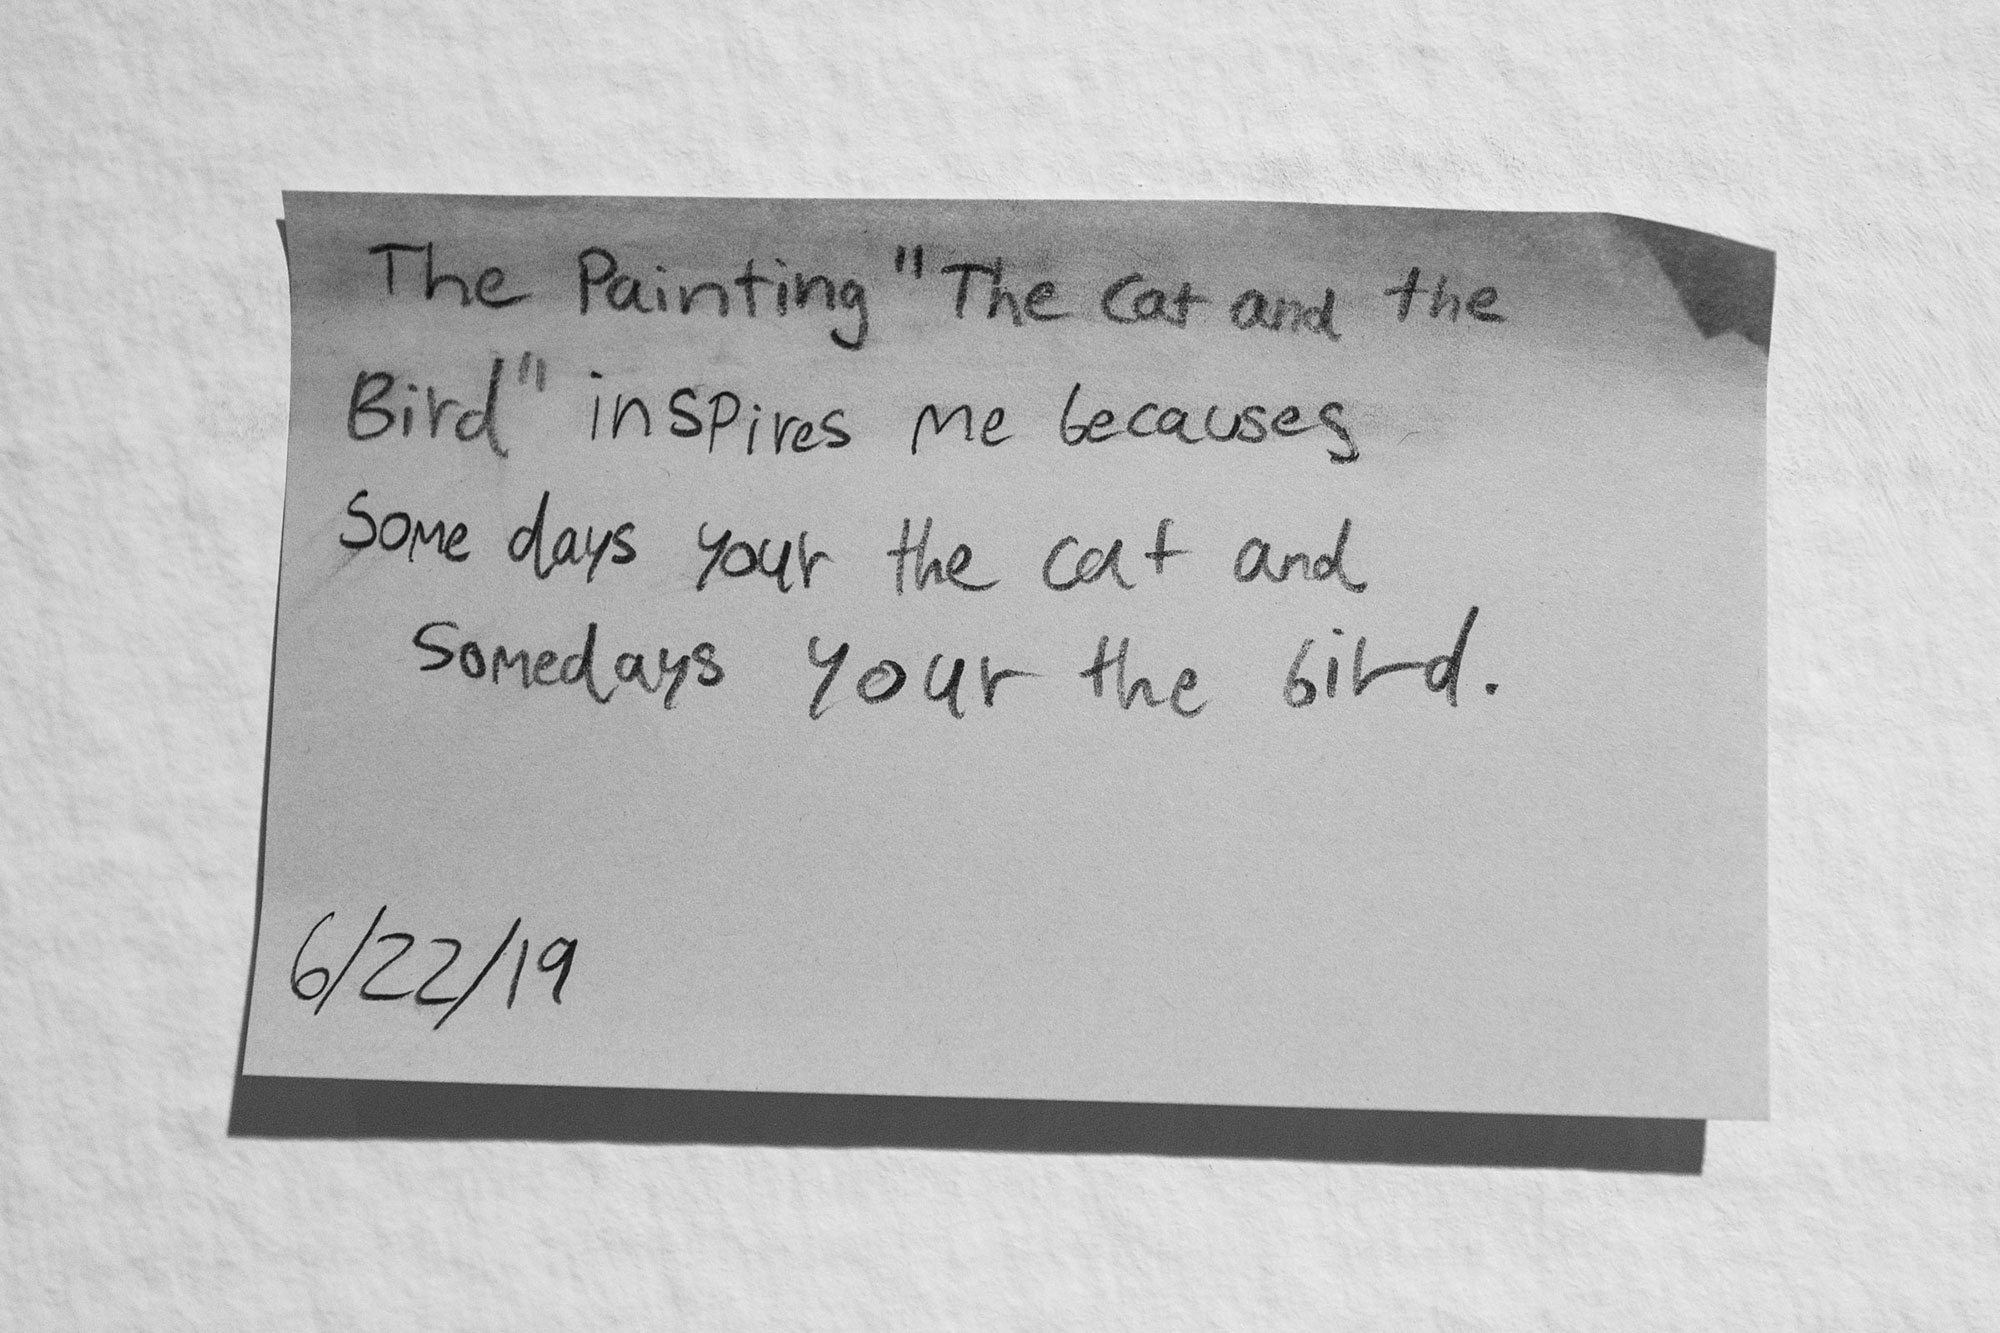 The Painting "The Cat and the
Bird" inspires me becauses
Some days your the cat and
Somedays your the bird.
6/22/19